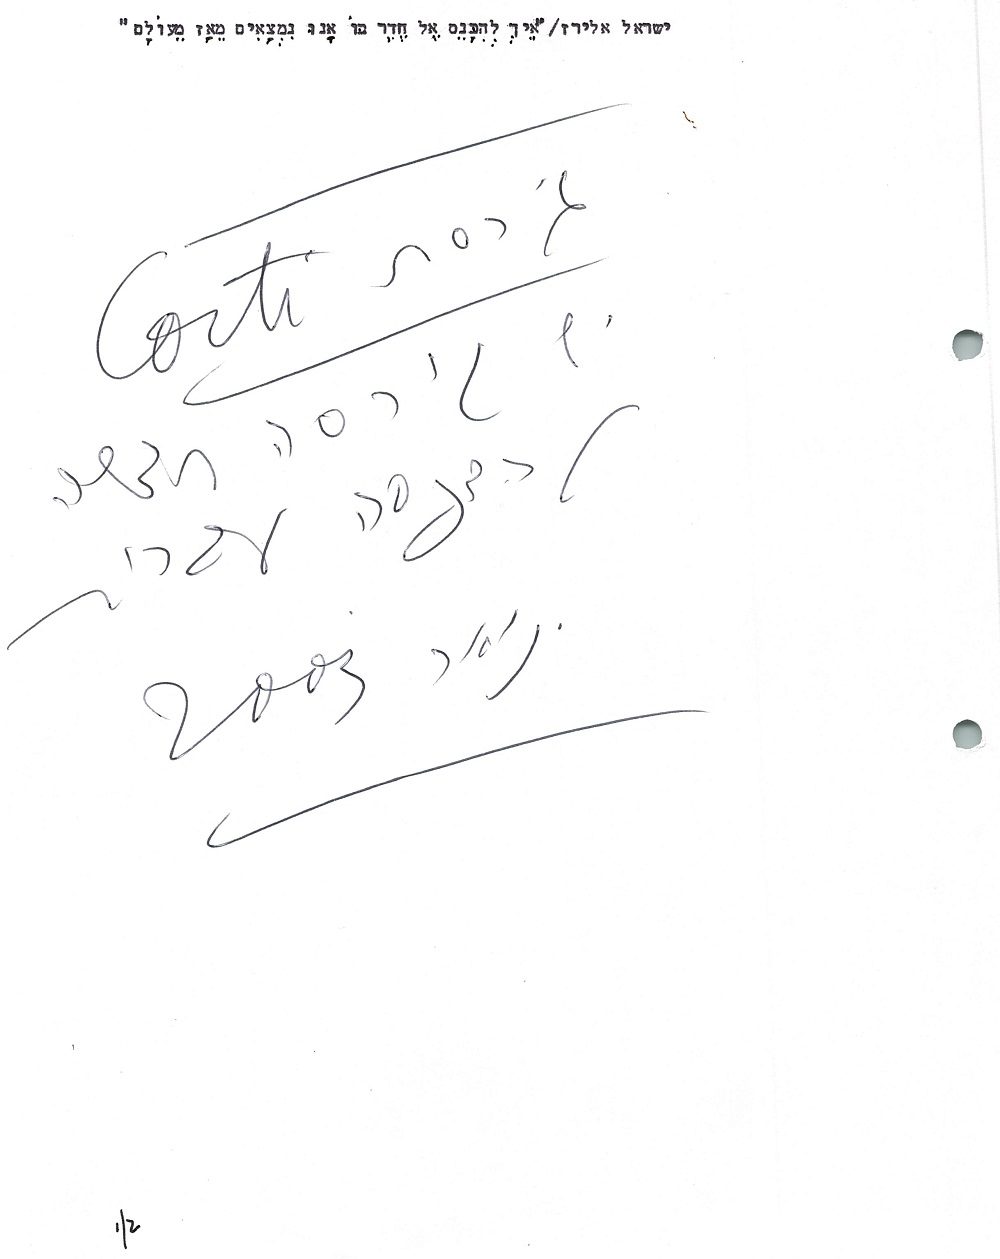 ישראל אלירז/"אֵיךְ לְהִכָּנֵס אֶל חֶדֶר בּוֹ אָנוּ נִמְצָאִים מֵאָז מֵעוֹלָם"
גירסת Corti
גירסה חדשה
להדפסה עברית
ינואר 2003
1/2